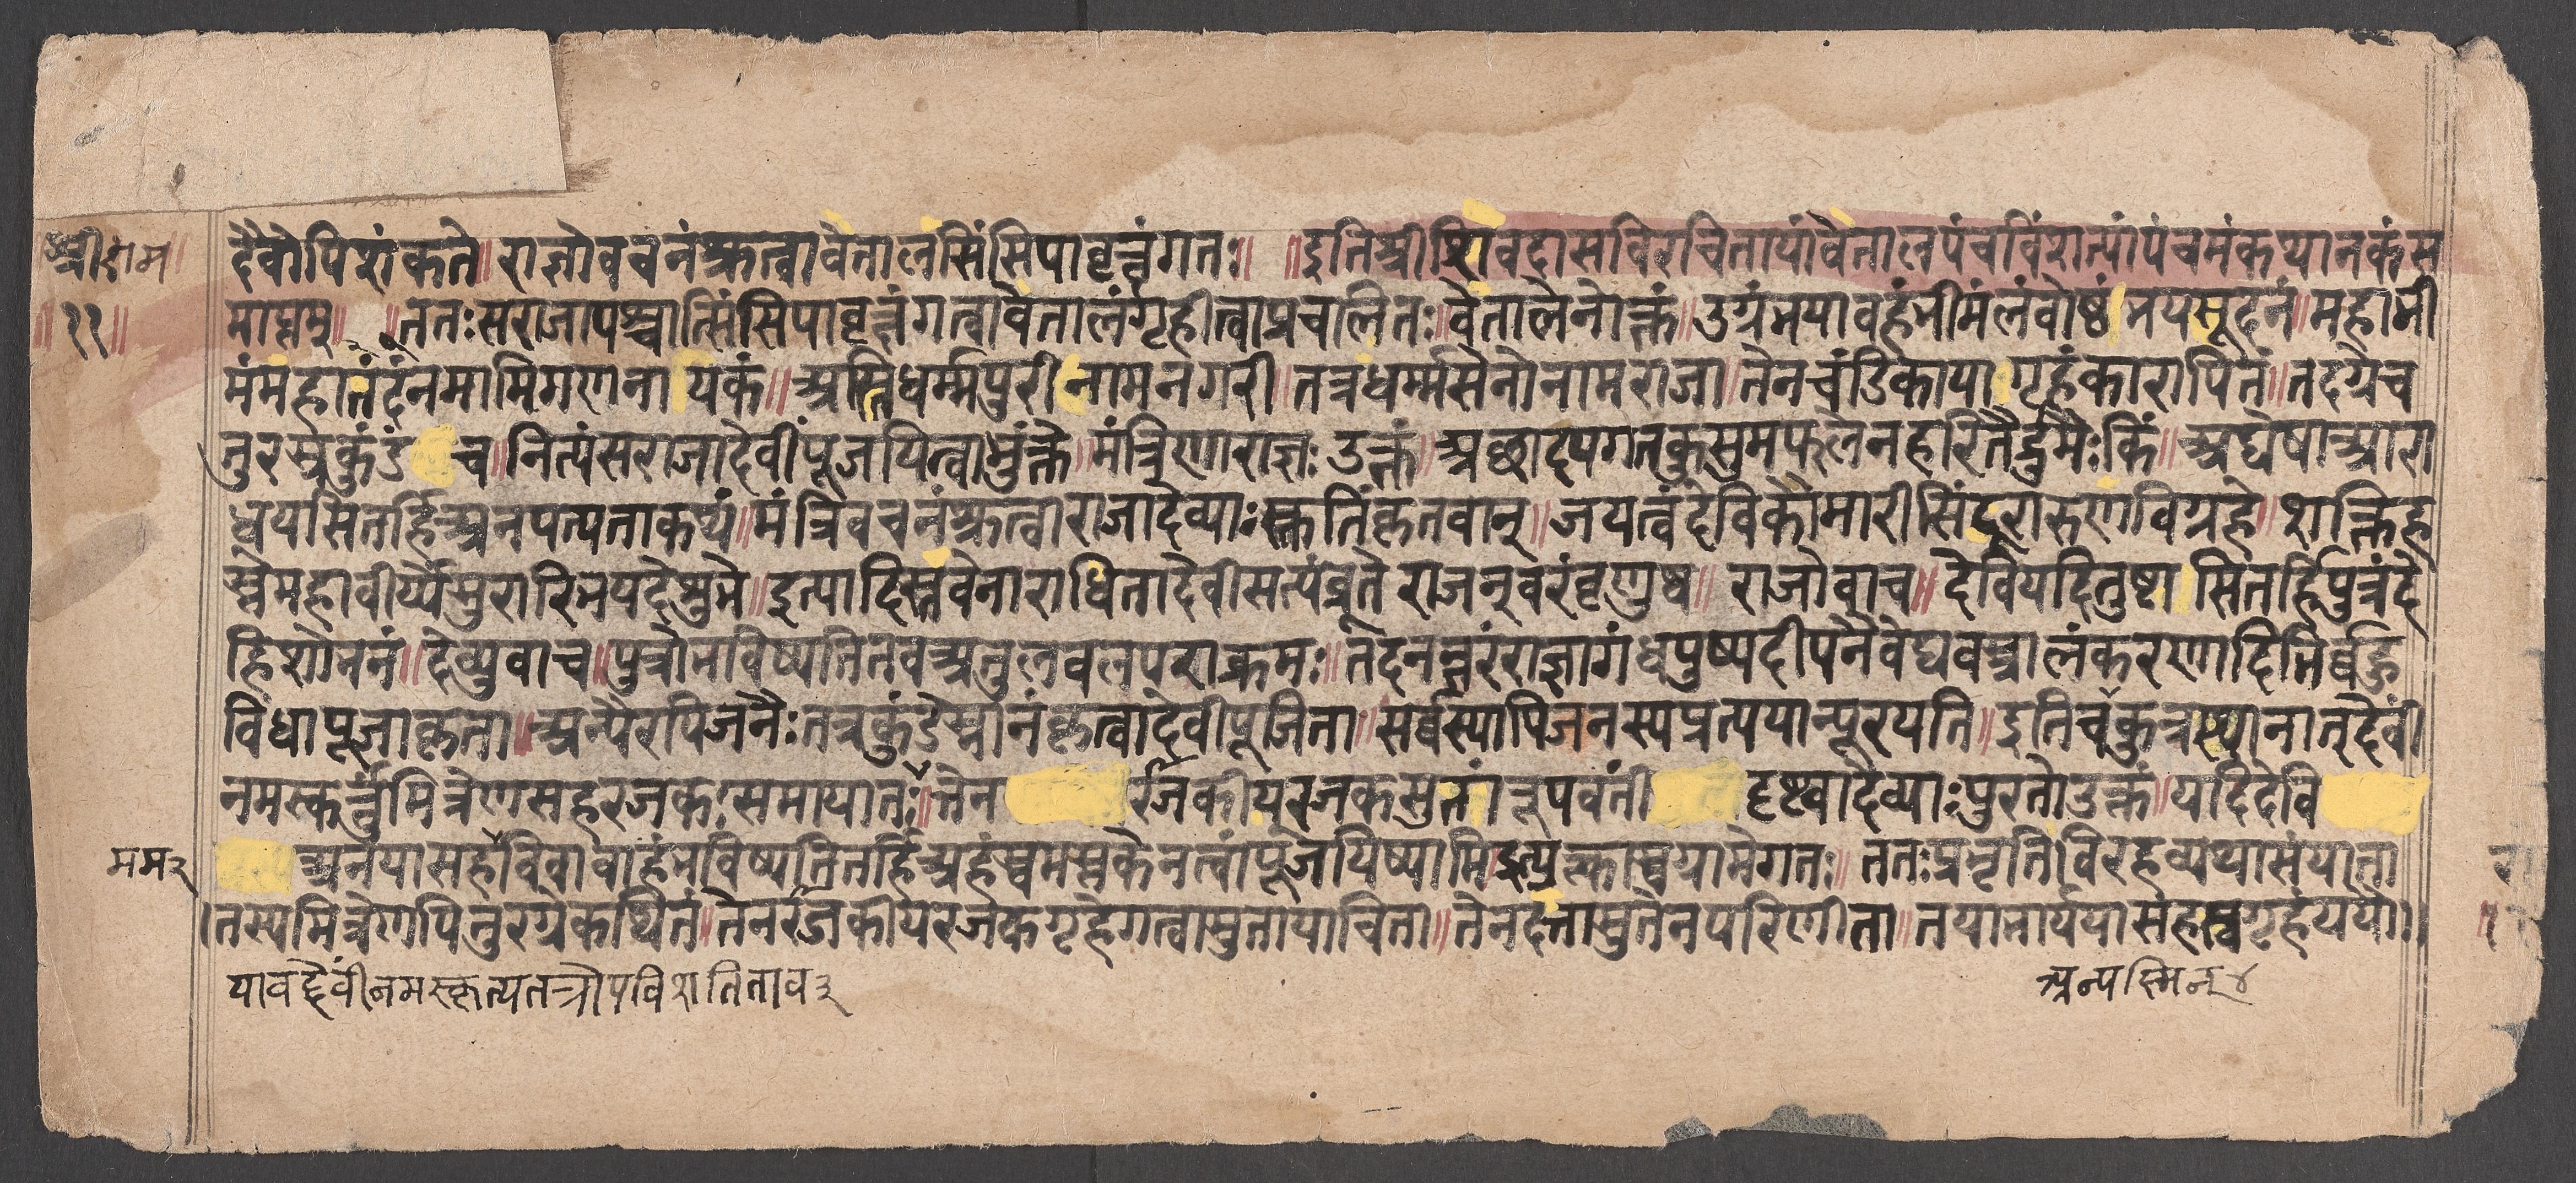 श्रीराम
॥११॥
देवोपिशंकते॥राज्ञोवचनंश्रुत्वावेतालसिंसिपावृक्षंगतः॥ ॥इतिश्रीशिवदासविरचितायांवेतालपंचविंशत्यांपंचमंकथानकंस
माप्तम्॥ ॥ततःसराजापश्चात्सिंसिपावृक्षंगत्वावेतालंगृहीत्वाप्रचलितः॥वेतालेनोक्तं॥उग्रंभयावहंभीमंलंबोष्ठंभयसूदनं॥महाभी
मंमहानंदंनमामिगणनायकं॥अस्तिधर्म्मपुरीनामनगरी॥तत्रधर्म्मसेनोनामराजा॥तेनचंडिकायागृहंकारापितं॥तदग्रेच
तुरस्रकुंडंच॥नित्यंसराजादेवींपूजयित्वाभुंक्ते॥मंत्रिणाराज्ञःउक्तं॥अछादपगतकुसुमफलेनहरितैर्द्रुमैःकिं॥अद्येषाआरा
धयसितर्हिअनपत्यताकथं॥मंत्रिवचनंश्रुत्वाराजादेव्याःस्तुतिंकृतवान्॥जयत्वंदेविकौमारीसिंदूरारुणविग्रहे॥शक्तिह
स्तेमहावीर्य्येसुरारिभयदेशुभे॥इत्यादिस्तवेनाराधितादेवीसत्यंब्रूतेराजन्वरंवृणुष्व॥राजोवाच॥देवियदितुष्टासितर्हिपुत्रंदे
हिशोभनं॥देव्युवाच॥पुत्रोभविष्यतितवअतुलबलपराक्रमः॥तदनन्तरंराज्ञागंधपुष्पदीपनैवेद्यवस्त्रालंकरणादिभिर्ब्बहु
विधापूजाकृता॥अन्यैरपिजनैःतत्रकुंडेस्नानंकृत्वादेवीपूजिता॥सर्वस्यापिजनस्यप्रत्ययान्पूरयति॥इतिचकुत्रस्थानात्देवीं
नमस्कर्त्तुंमित्रेणसहरजकःसमायातः॥तेनरजकीयरजकसुतांरूपवतींदृष्ट्वादेव्याःपुरतोउक्तं॥यदिदेवि
अनयासहविवाहंभविष्यतितर्हिअहंस्वमस्तकेनत्वांपूजयिष्यामिइत्युक्त्वास्वग्रामेगतः॥ततःप्रभृतिविरहव्यथासंयाता
मम२
।तस्यमित्रेणपितुरग्रेकथितं॥तेनरजकीयरजकगृहेगत्वासुतायाचिता॥तेनदत्तासुतेनपरिणीता॥तयाभार्ययासहस्वगृहंययौ॥
यावद्देवींनमस्कृत्यतत्रोपविशतिताव३
अन्यस्मिन्४